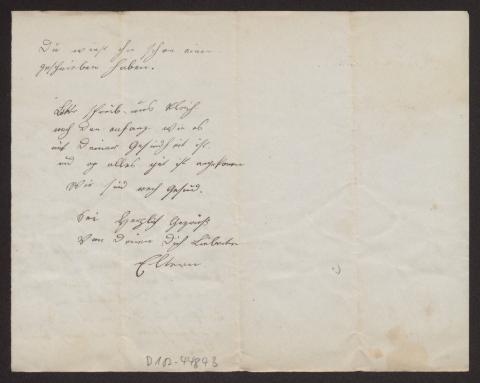 Du wirst ihr schon einen
geschrieben haben.
Bitte schreib uns gleich
nach dem anfang wie es
mit deiner Gesundheit ist
und op alles gut ist angekommen
Wir sind noch Gesund.
Sei Herzlich Gegrüßt
Von deinen Dich Liebenden
Eltern
D 102-44843